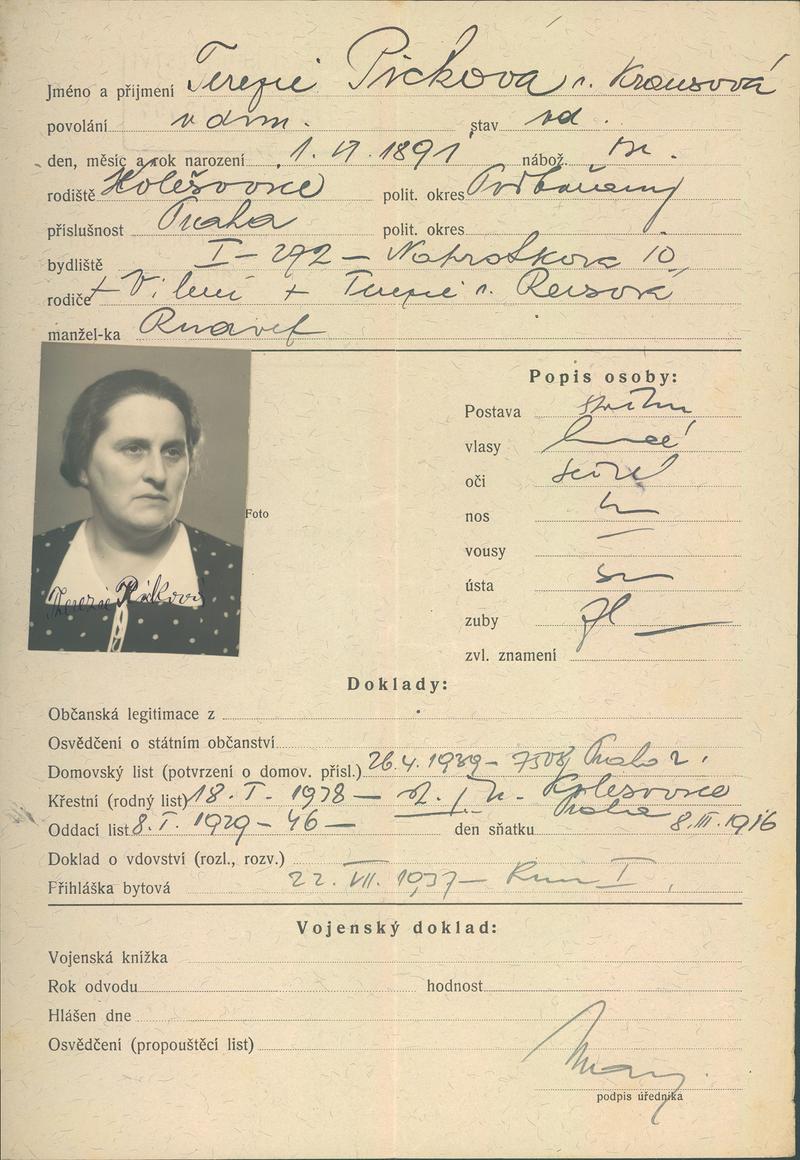 Jméno a příjmení Terezie Picková r. Krausová
povolání v dom. stav vd.
den, měsíc a rok narození 1. VI. 1891 nábož.
rodiště Holešovice polit. okres Podbořany
příslušnost Praha polit. okres
bydliště I – 292 – Náprstkova 10
rodiče + Vilém + Terezie r. Reisová
manžel-ka
Foto
Terezie Picková
Popis osoby:
Postava
vlasy
oči šedé
nos
vousy –
ústa
zuby
zvl. znamení
Doklady:
Občanská legitimace z
Osvědčení o státním občanství
Domovský list (potvrzení o domov. přísl.) 26.4. 1939 – 7508 Praha 2.
Křestní (rodný list) 18. I. 1938 –
Oddací list 8. I. 1929 – 46 – den sňatku Praha 8. III. 1916
Doklad o vdovství (rozl., rozv.)
Přihláška bytová 22. VII. 1937 – I
Vojenský doklad:
Vojenská knížka
Rok odvodu hodnost
Hlášen dne
Osvědčení (propouštěcí list)
podpis úředníka